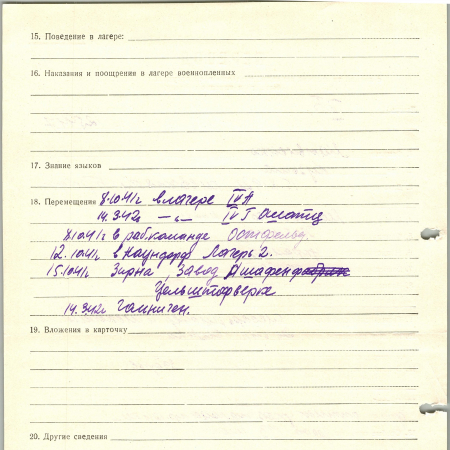 15. Поведение в лагере:
16. Наказания и поощрения в лагере военнопленных
17. Знание языков
18. Перемещения 8.10.41г в лагере IVA
14.3.42г —„— IV Г Ошатц
8.10.41г в раб.команде Остфельд.
12.10.41г в Наундорф Лагерь 2.
15.10.41г Зирна Завод Ашафен
Цельштофверке
14.3.42г Гаиничен.
19. Вложения в карточку
20. Другие сведения